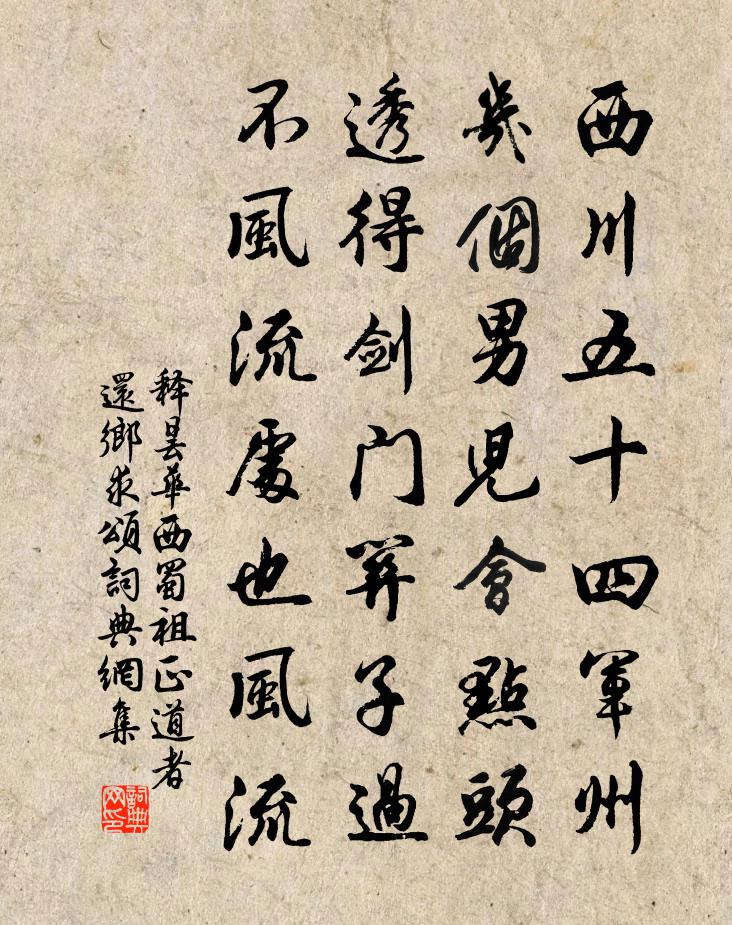 西川五十四軍州
幾個男児會點頭
透得劍门關子過
不風流處也風流
释曇華西蜀祖正道者
還鄉求頌詞典網集
詞典网印